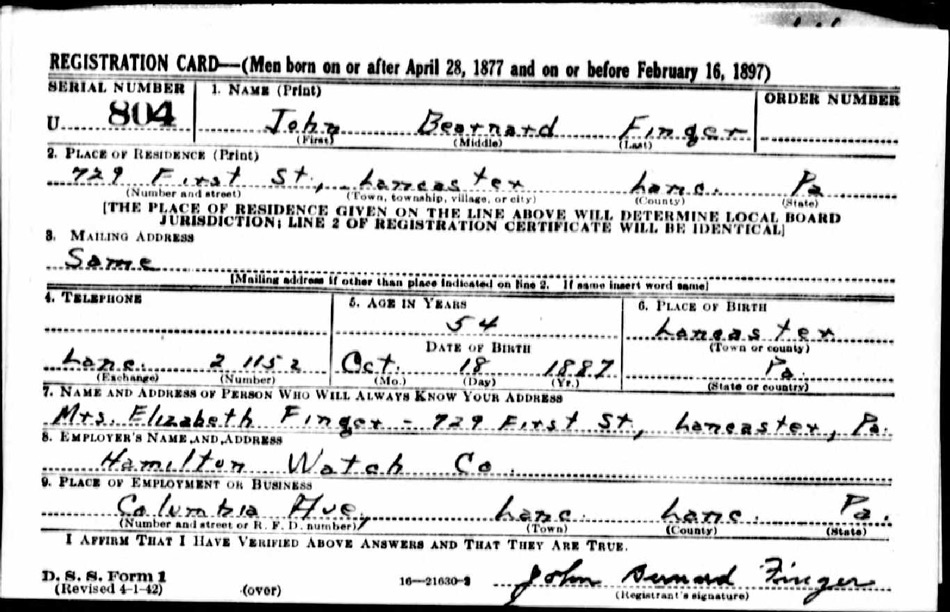 REGISTRATION CARD—(Men born on or after April 28, 1877 and on or before February 16, 1897)
SERIAL NUMBER 1. NAME (Print) ORDER NUMBER
U 804 John Bearnard Finger
(First) (Middle) (Last)
2. PLACE OF RESIDENCE (Print)
729 First St., Lancaster Lanc. Pa
(Number and street) (Town, township, village, or city) (County) (State)
[THE PLACE OF RESIDENCE GIVEN ON THE LINE ABOVE WILL DETERMINE LOCAL BOARD
JURISDICTION; LINE 2 OF REGISTRATION CERTIFICATE WILL BE IDENTICAL]
3. MAILING ADDRESS
Same
[Mailing address if other than place indicated on line 2. If same insert word same]
4. TELEPHONE 5. AGE IN YEARS 6. PLACE OF BIRTH
54 Lancaster
DATE OF BIRTH (Town or county)
Lanc. 2 1152 Oct. 18 1887 Pa.
(Exchange) (Number) (Mo.) (Day) (Yr.) (State or country)
7. NAME AND ADDRESS OF PERSON WHO WILL ALWAYS KNOW YOUR ADDRESS
Mrs. Elizabeth Finger - 729 First St., Lancaster, Pa.
8. EMPLOYER'S NAME AND ADDRESS
Hamilton Watch Co.
9. PLACE OF EMPLOYMENT OR BUSINESS
Columbia Ave, Lanc Lanc. Pa.
(Number and street or R. F. D. number) (Town) (County) (State)
I AFFIRM THAT I HAVE VERIFIED ABOVE ANSWERS AND THAT THEY ARE TRUE.
D. S. S. Form 1
(Revised 4-1-42) (over) 16—21630-2 John Bernard Finger
(Registrant's signature)